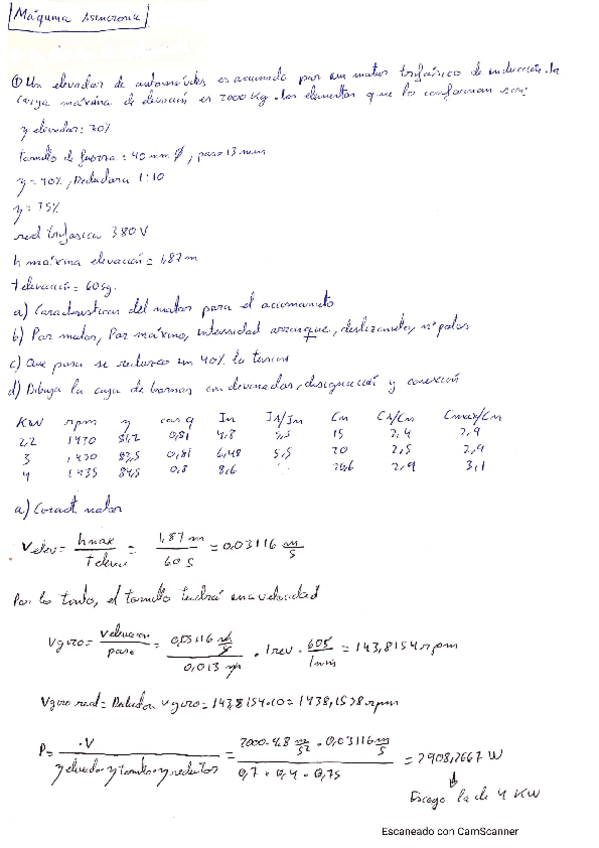 Máquina Asíncrona
① Un elevador de automóviles es accionado por un motor trifásico de inducción. La
carga máxima de elevación es 2000 kg. Los elementos que lo conforman son:
η elevador: 70%
tornillo de fuerza: 40 mm Ø, paso 13 mm
η = 40%, Reductora 1:10
η = 75%
red trifásica 380 V
h máxima elevación = 1,87 m
t elevación = 60 sg.
a) Características del motor para el accionamiento
b) Par motor, Par máximo, intensidad arranque, deslizamiento, nº polos
c) Que pasa se reduzco un 40% la tensión
d) Dibuja la caja de bornas con devanados, designación y conexión
KW rpm η cos φ In IA/In Cn CA/Cn Cmax/Cn
2,2 1430 81,2 0,81 4,8 15 2,4 2,9
3 1430 0,81 6,48 5,5 20 2,5 2,9
4 1435 84,5 0,8 8,6 26,6 2,9 3,1
a) Caract motor
Velev = hmax / t elevac = 1,87 m / 60 s = 0,03116 m/s
Por lo tanto, el tornillo tendrá una velocidad
Vgiro = Velevacion / paso = 0,03116 m/s / 0,013 m · 1rev · 60s / 1min = 143,8154 rpm
Vgiro real = Reductor · Vgiro = 143,8154·10 = 1438,1538 rpm
P = ·V / η elevador · η tornillo · η reductor = 2000·9.8 m/s² · 0,03116 m/s / 0,7 · 0,4 · 0,75 = 2908,2667 W
Escogo la de 4 KW
Escaneado con CamScanner